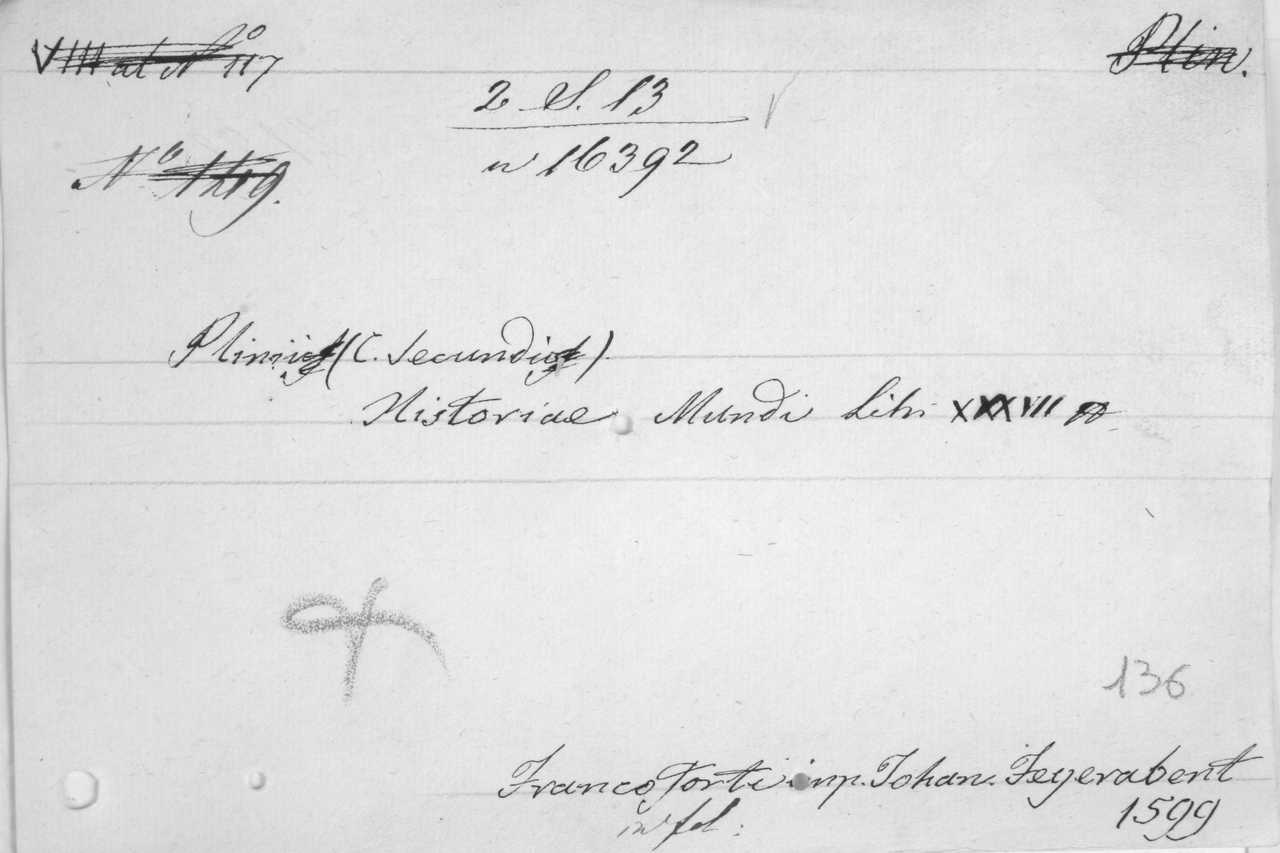 VIIII at No 117
Plin.
2 S. 13
n 16392
No 1219.
Plinii (C. Secundi).
Historiae Mundi Libri XXXVII
136
Francoforti imp. Johan. Feyerabent
in fol: 1599